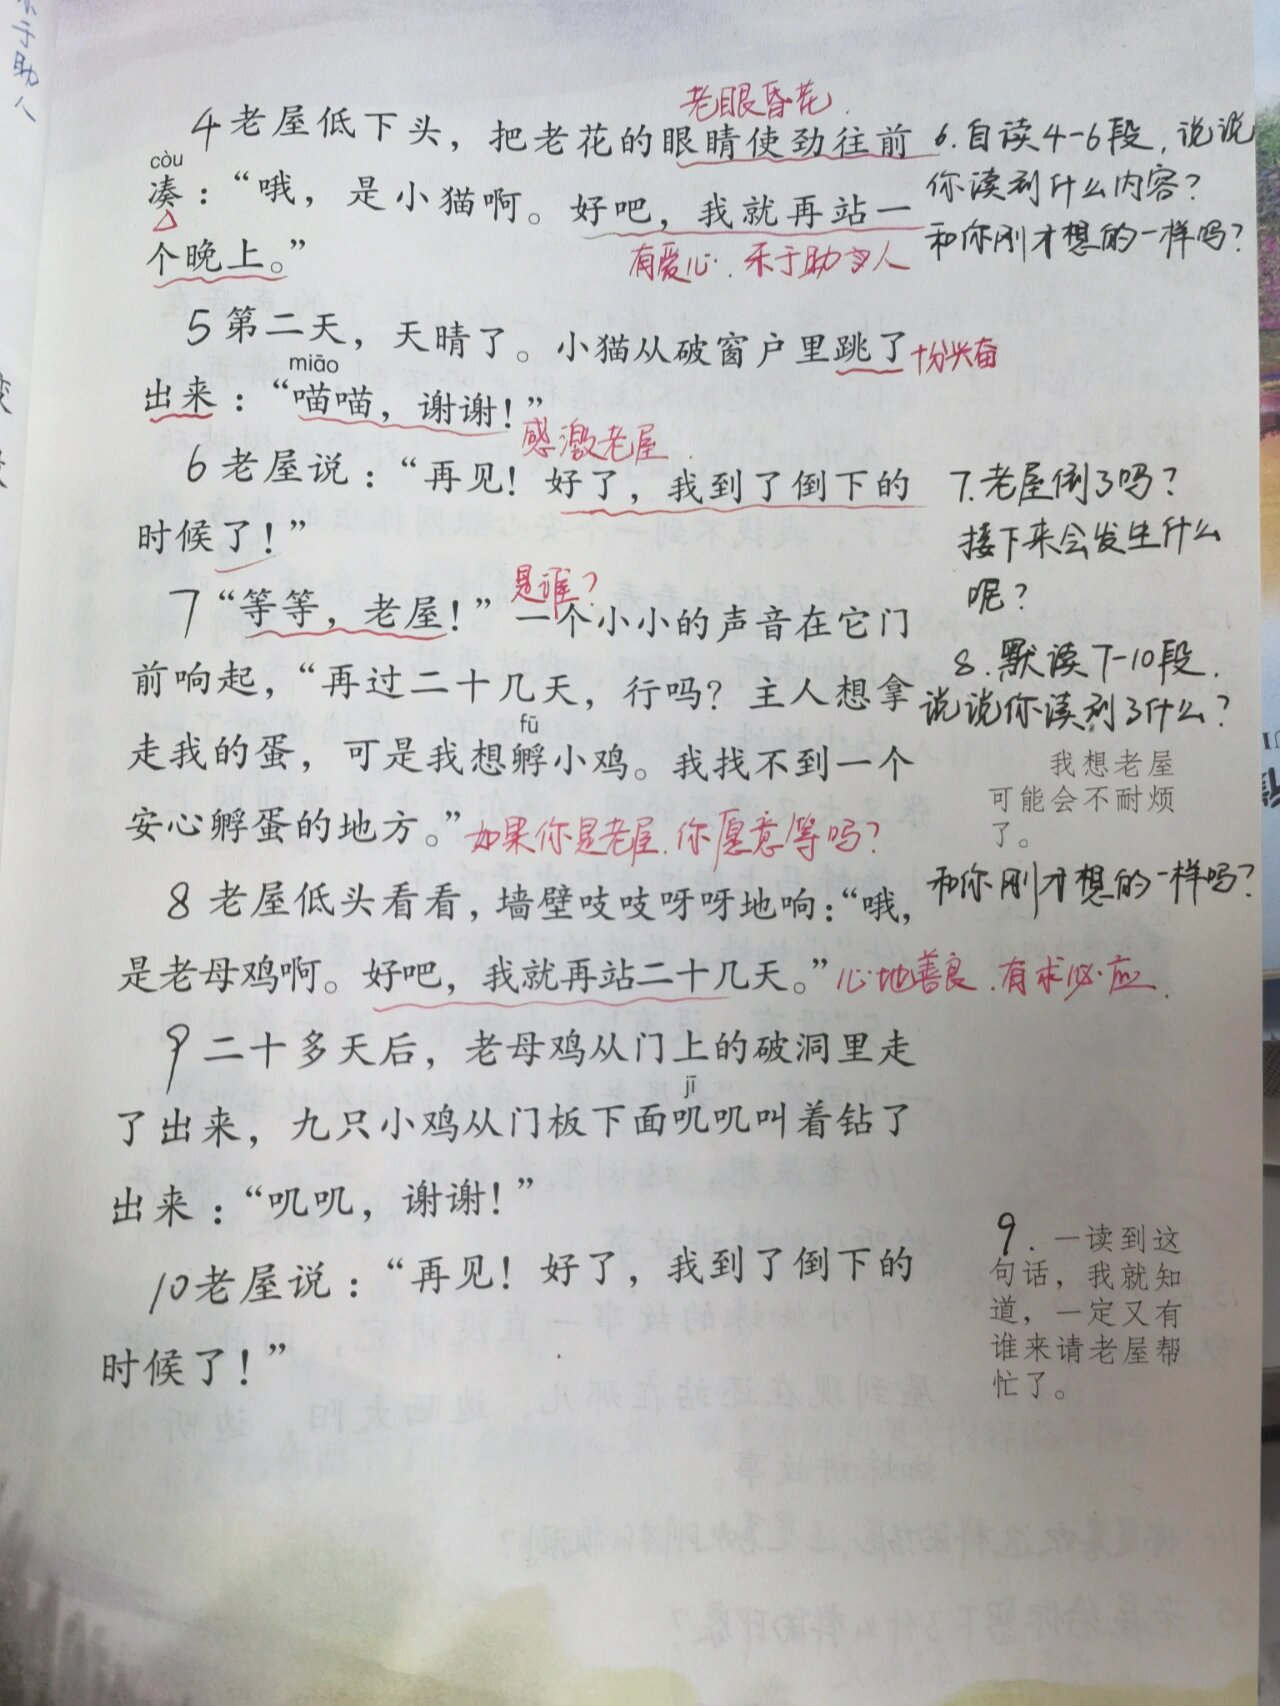 乐于助人
老眼昏花.
4 老屋低下头，把老花的眼睛使劲往前
còu
凑：“哦，是小猫啊。好吧，我就再站一
个晚上。”
有爱心. 乐于助人
6. 自读4-6段，说说
你读到什么内容？
和你刚才想的一样吗？
5 第二天，天晴了。小猫从破窗户里跳了
十分兴奋
miāo
出来：“喵喵，谢谢！”
感激老屋.
6 老屋说：“再见！好了，我到了倒下的
时候了！”
7. 老屋倒了吗？
接下来会发生什么
呢？
是谁？
7 “等等，老屋！”一个小小的声音在它门
前响起，“再过二十几天，行吗？主人想拿
fū
走我的蛋，可是我想孵小鸡。我找不到一个
安心孵蛋的地方。”
如果你是老屋. 你愿意等吗？
8. 默读7-10段.
说说你读到了什么？
我想老屋
可能会不耐烦
了。
和你刚才想的一样吗？
8 老屋低头看看，墙壁吱吱呀呀地响：“哦，
是老母鸡啊。好吧，我就再站二十几天。”
心地善良. 有求必应.
9 二十多天后，老母鸡从门上的破洞里走
jī
了出来，九只小鸡从门板下面叽叽叫着钻了
出来：“叽叽，谢谢！”
10 老屋说：“再见！好了，我到了倒下的
时候了！”
9. 一读到这
句话，我就知
道，一定又有
谁来请老屋帮
忙了。